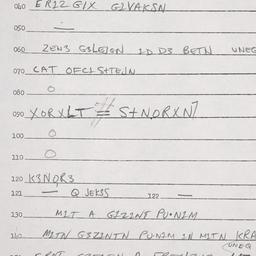 040 ER1Z GIX G1VAKSN
050 —
060 ZEN3 G3LEIGN 1D D3 BETN UNEG
070 CAT OFCLSTTEIN
080 O
090 XORXLT # S+NORXN7
100 O
110 O
120 K3NOR3
121 — Q JEKSS 122 —
130 MIT A GIZINT PU•NIM
140 MITN G3ZINTN PU•NIM IN MITN KRA
UNEQ